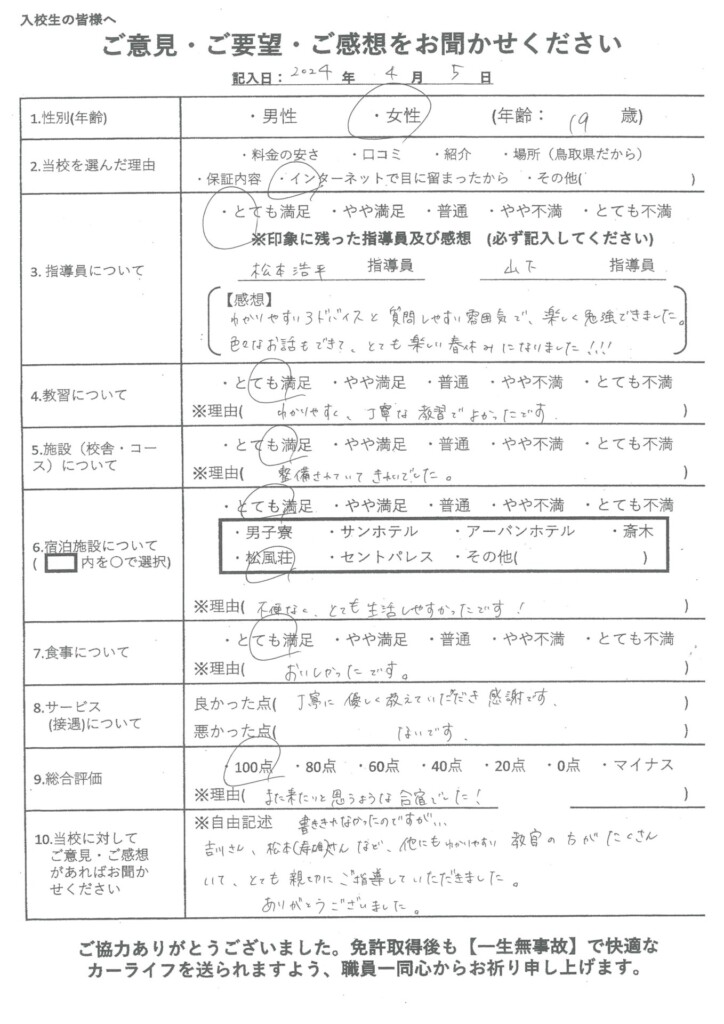 入校生の皆様へ
ご意見・ご要望・ご感想をお聞かせください
記入日：2024 年 4 月 5 日
1.性別(年齢)
・男性 ・女性 (年齢： 19 歳)
2.当校を選んだ理由
・料金の安さ ・口コミ ・紹介 ・場所（鳥取県だから）
・保証内容 ・インターネットで目に留まったから ・その他( )
3. 指導員について
・とても満足 ・やや満足 ・普通 ・やや不満 ・とても不満
※印象に残った指導員及び感想 (必ず記入してください)
松本浩平 指導員 山下 指導員
【感想】
わかりやすいアドバイスと質問しやすい雰囲気で、楽しく勉強できました。
色々なお話もできて、とても楽しい春休みになりました!!!
4.教習について
・とても満足 ・やや満足 ・普通 ・やや不満 ・とても不満
※理由( わかりやすく、丁寧な教習でよかったです )
5.施設（校舎・コース）について
・とても満足 ・やや満足 ・普通 ・やや不満 ・とても不満
※理由( 整備されていてきれいでした。 )
6.宿泊施設について
( 内を○で選択)
・とても満足 ・やや満足 ・普通 ・やや不満 ・とても不満
・男子寮 ・サンホテル ・アーバンホテル ・斎木
・松風荘 ・セントパレス ・その他( )
※理由( 不便なく、とても生活しやすかったです! )
7.食事について
・とても満足 ・やや満足 ・普通 ・やや不満 ・とても不満
※理由( おいしかったです。 )
8.サービス
(接遇)について
良かった点( 丁寧に優しく教えていただき感謝です. )
悪かった点( ないです. )
9.総合評価
・100点 ・80点 ・60点 ・40点 ・20点 ・0点 ・マイナス
※理由( また来たいと思うような合宿でした! )
10.当校に対して
ご意見・ご感想
があればお聞か
せください
※自由記述 書ききれなかったのですが...
吉川さん、松本(寿雄)さんなど、他にもわかりやすい教官の方がたくさん
いて、とても親切にご指導していただきました。
ありがとうございました。
ご協力ありがとうございました。免許取得後も【一生無事故】で快適な
カーライフを送られますよう、職員一同心からお祈り申し上げます。